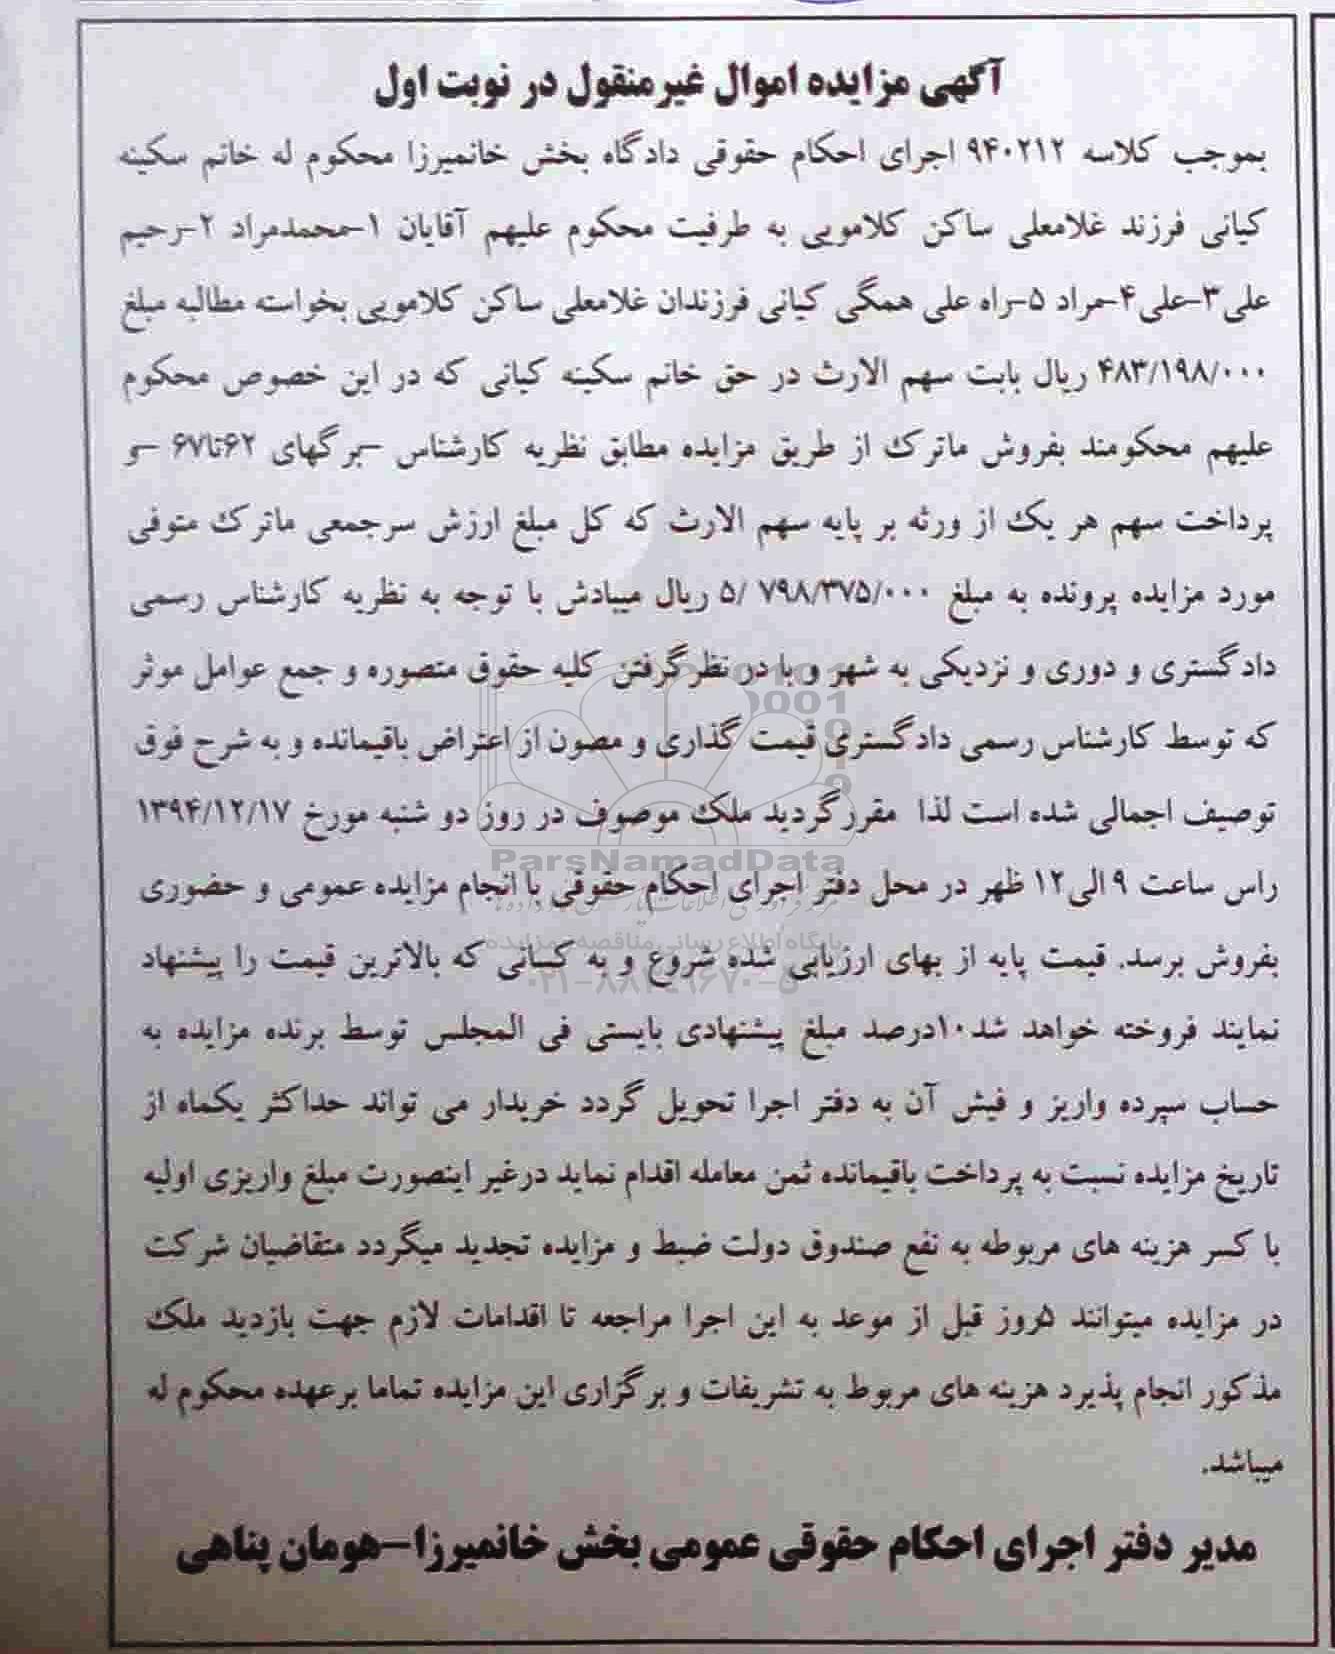 آگهی مزایده اموال غیرمنقول در نوبت اول
بموجب کلاسه ۹۴۰۲۱۲ اجرای احکام حقوقی دادگاه بخش خانمیرزا محکوم له خانم سکینه
کیانی فرزند غلامعلی ساکن کلامویی به طرفیت محکوم علیهم آقایان ۱-محمدمراد ۲-رحیم
علی۳-علی۴-مراد ۵-راه علی همگی کیانی فرزندان غلامعلی ساکن کلامویی بخواسته مطالبه مبلغ
۴۸۳/۱۹۸/۰۰۰ ریال بابت سهم الارث در حق خانم سکینه کیانی که در این خصوص محکوم
علیهم محکومند بفروش ماترک از طریق مزایده مطابق نظریه کارشناس -برگهای ۶۲تا۶۷ -و
پرداخت سهم هر یک از ورثه بر پایه سهم الارث که کل مبلغ ارزش سرجمعی ماترک متوفی
مورد مزایده پرونده به مبلغ ۷۹۸/۳۷۵/۰۰۰ /۵ ریال میبادش با توجه به نظریه کارشناس رسمی
دادگستری و دوری و نزدیکی به شهر و با در نظرگرفتن کلیه حقوق متصوره و جمع عوامل موثر
که توسط کارشناس رسمی دادگستری قیمت گذاری و مصون از اعتراض باقیمانده و به شرح فوق
توصیف اجمالی شده است لذا مقررگردید ملک موصوف در روز دو شنبه مورخ ۱۳۹۴/۱۲/۱۷
راس ساعت ۹ الی۱۲ ظهر در محل دفتر اجرای احکام حقوقی با انجام مزایده عمومی و حضوری
بفروش برسد. قیمت پایه از بهای ارزیابی شده شروع و به کسانی که بالاترین قیمت را پیشنهاد
نمایند فروخته خواهد شد۱۰درصد مبلغ پیشنهادی بایستی فی المجلس توسط برنده مزایده به
حساب سپرده واریز و فیش آن به دفتر اجرا تحویل گردد خریدار می تواند حداکثر یکماه از
تاریخ مزایده نسبت به پرداخت باقیمانده ثمن معامله اقدام نماید درغیر اینصورت مبلغ واریزی اولیه
با کسر هزینه های مربوطه به نفع صندوق دولت ضبط و مزایده تجدید میگردد متقاضیان شرکت
در مزایده میتوانند ۵روز قبل از موعد به این اجرا مراجعه تا اقدامات لازم جهت بازدید ملک
مذکور انجام پذیرد هزینه های مربوط به تشریفات و برگزاری این مزایده تماما برعهده محکوم له
میباشد.
مدیر دفتر اجرای احکام حقوقی عمومی بخش خانمیرزا-هومان پناهی
ParsNamadData
پایگاه اطلاع رسانی مناقصه و مزایده